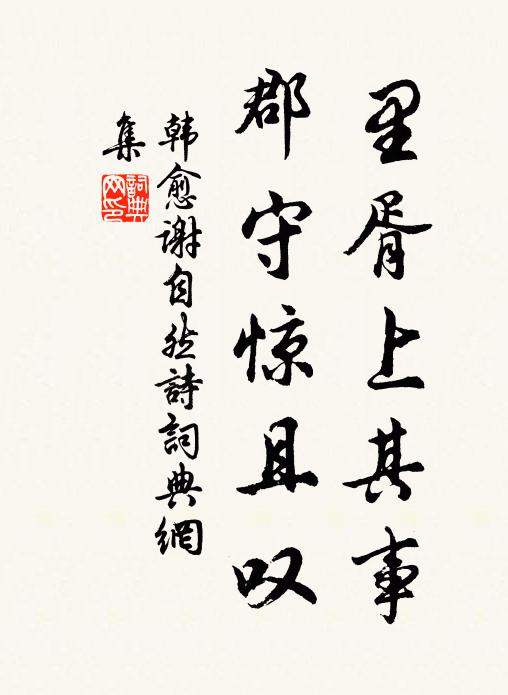 里胥上其事
郡守惊且叹
韩愈谢自然詩詞典網
集
詞典网印